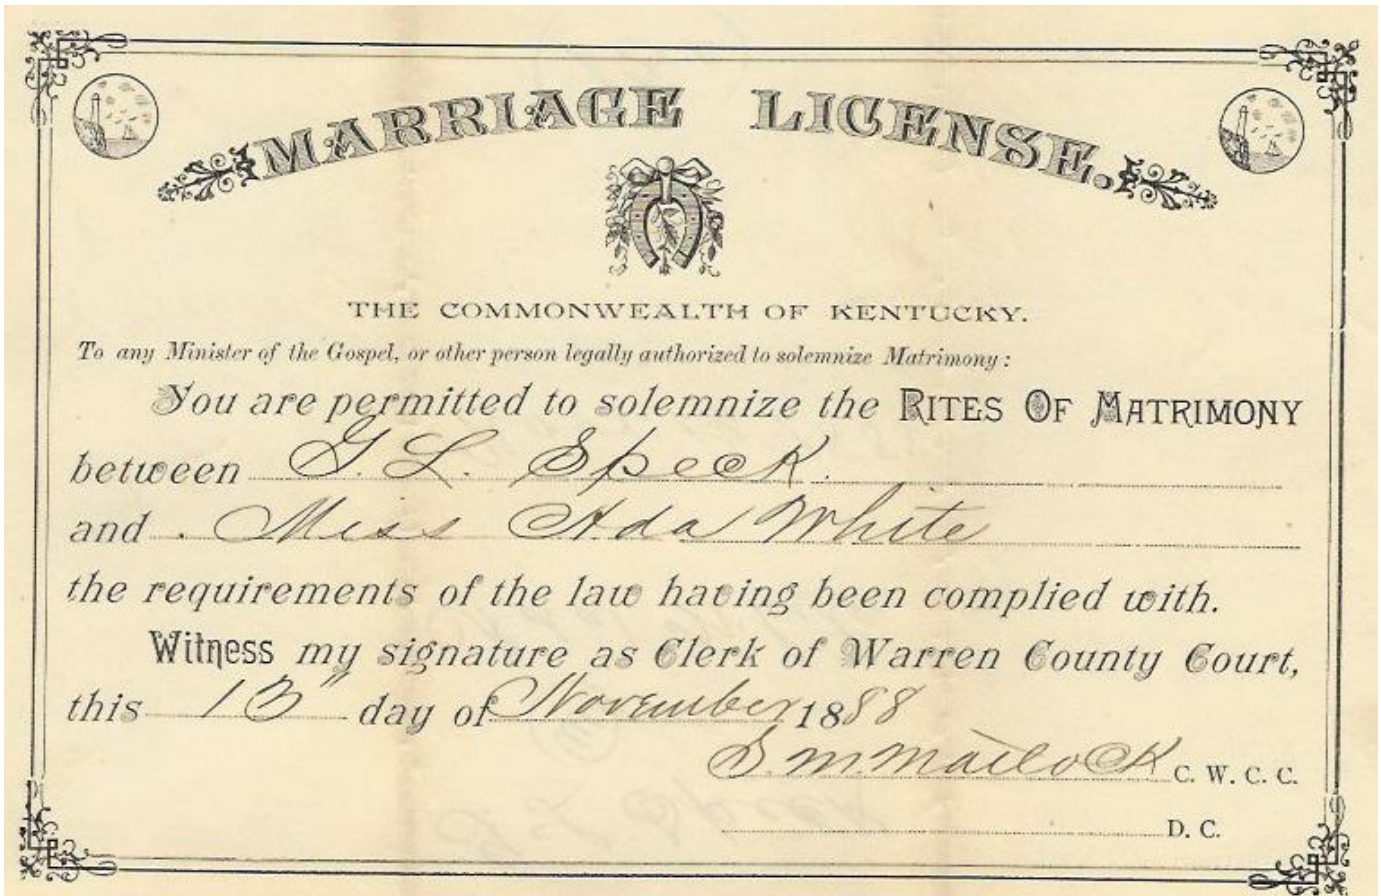 MARRIAGE LICENSE.
THE COMMONWEALTH OF KENTUCKY.
To any Minister of the Gospel, or other person legally authorized to solemnize Matrimony:
You are permitted to solemnize the RITES OF MATRIMONY
between G. L. Speck.
and Miss Ada White
the requirements of the law having been complied with.
Witness my signature as Clerk of Warren County Court,
this 13" day of November 1888
C. W. C. C.
D. C.